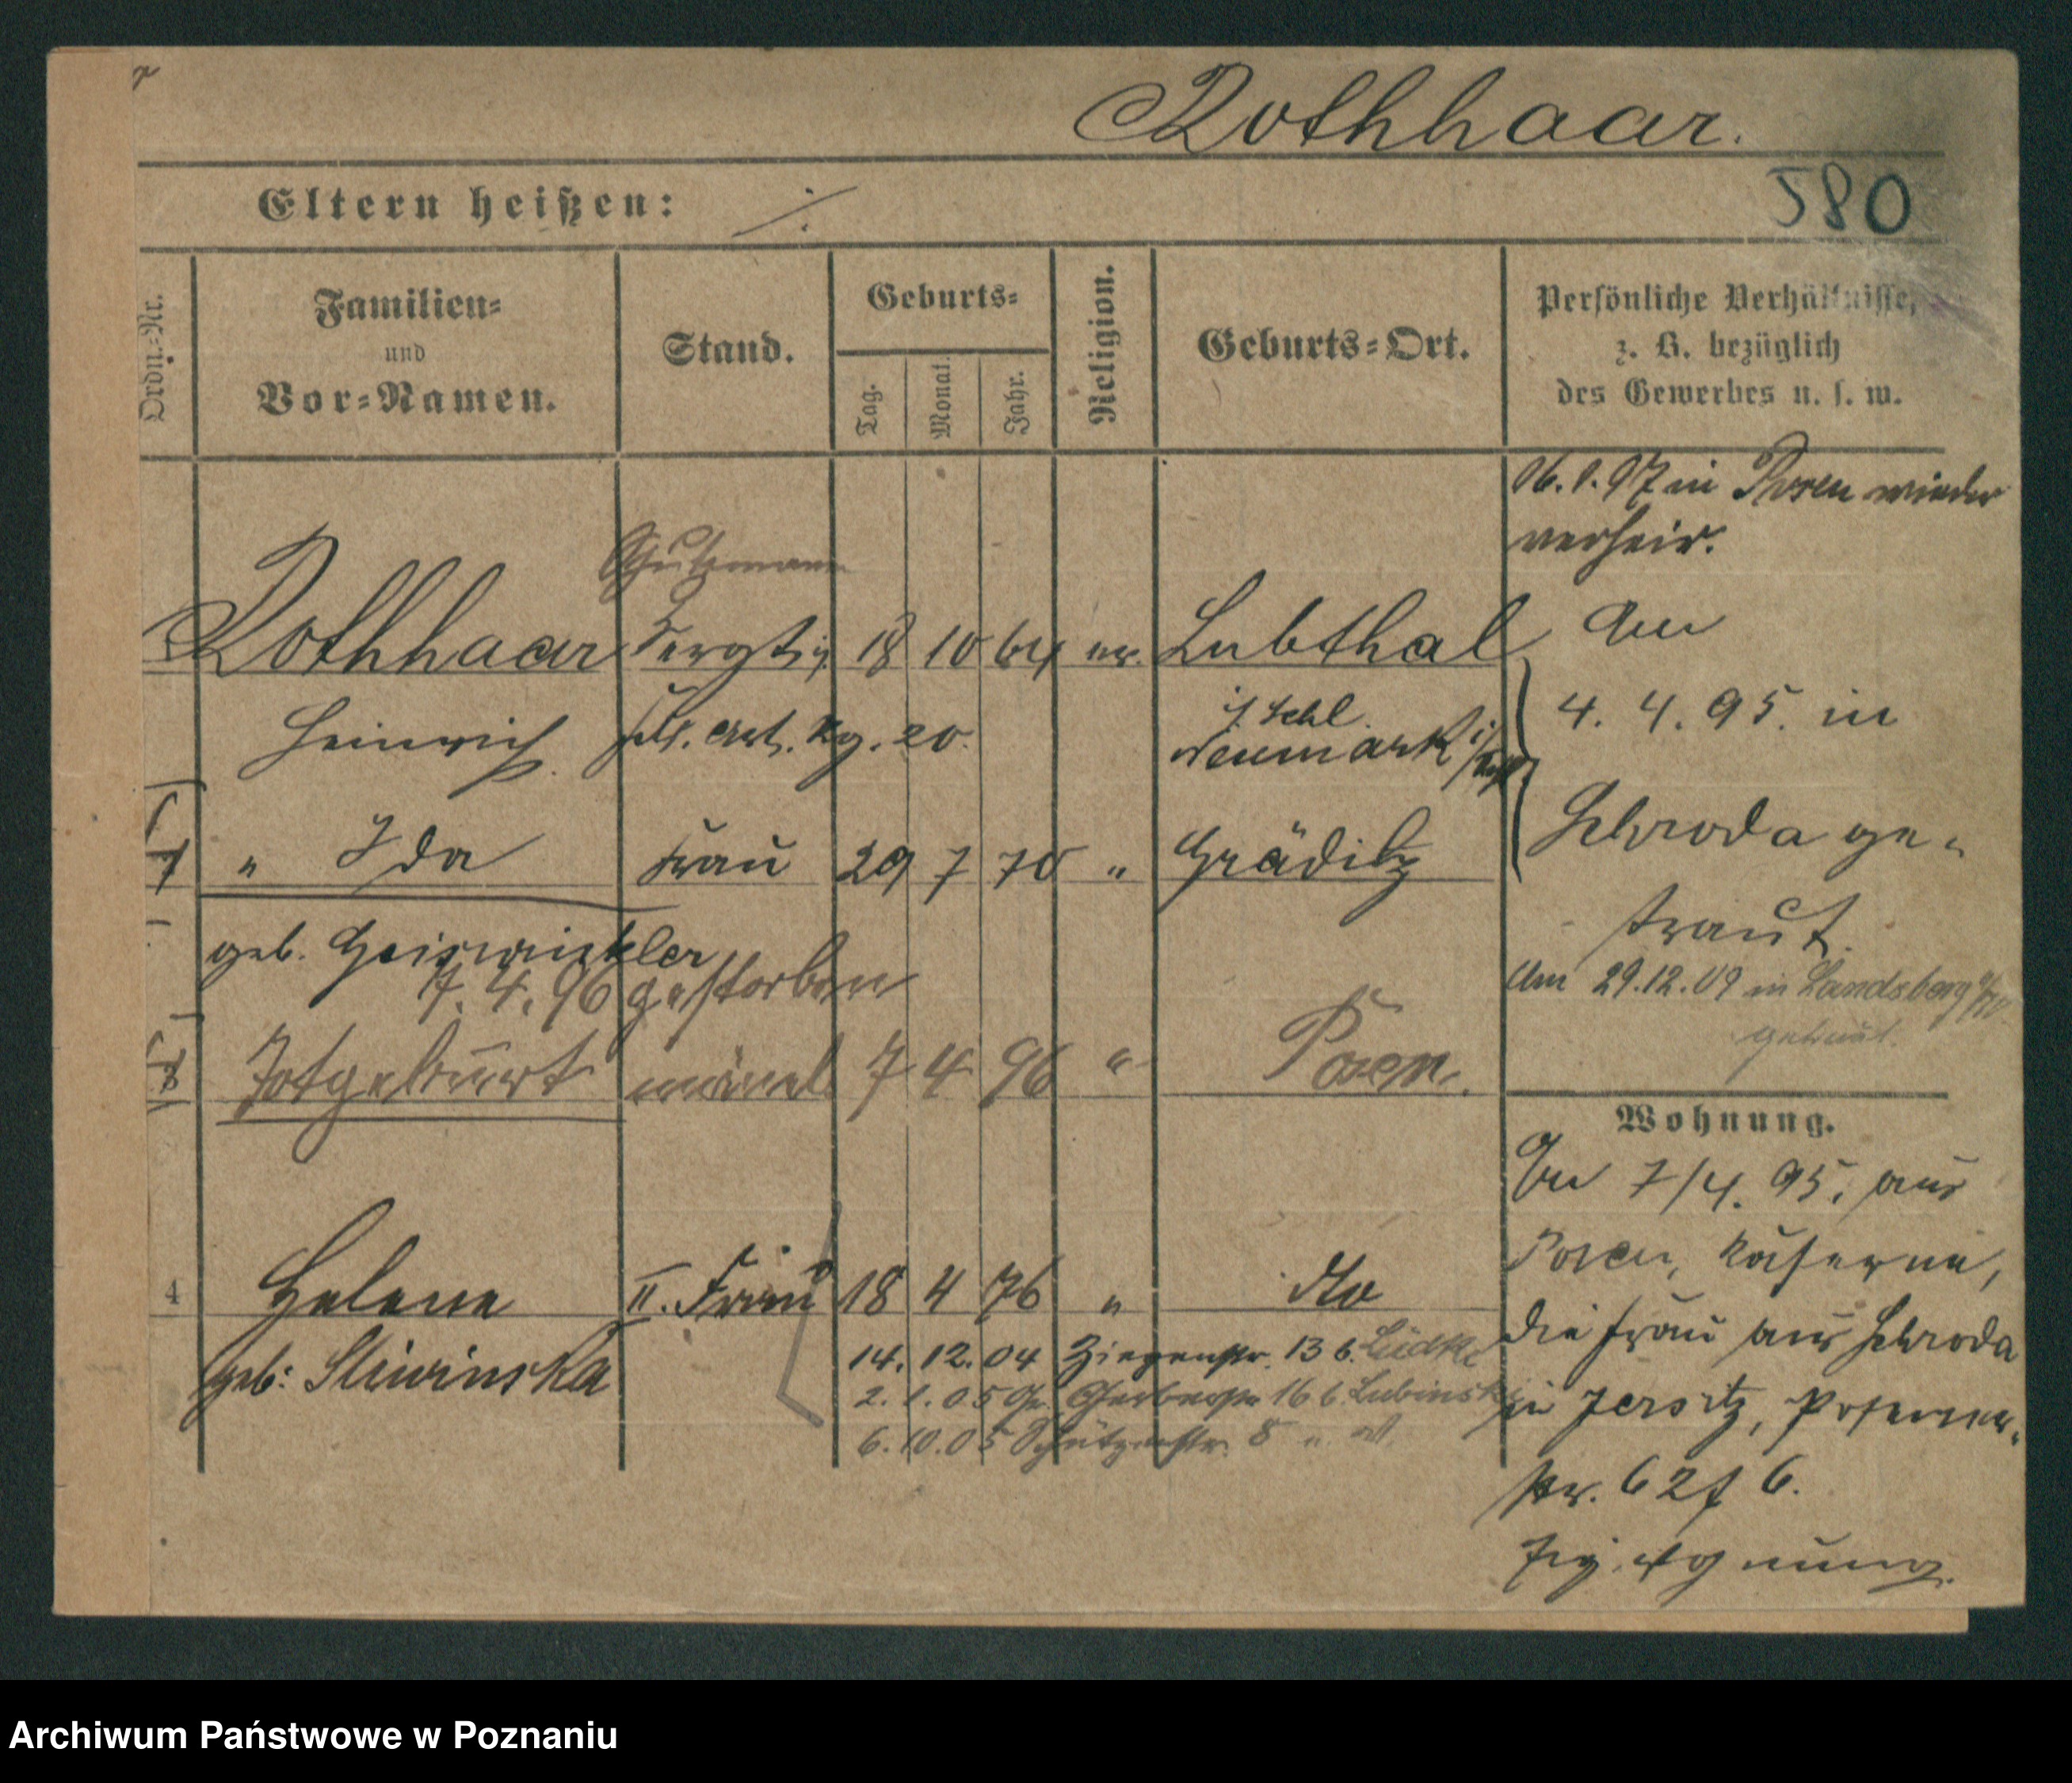 Rothhaar.
580
Eltern heißen: ./.
Ordn.-Nr.
Familien-
und
Vor-Namen.
Stand.
Geburts-
Tag.
Monat.
Jahr.
Religion.
Geburts-Ort.
Persönliche Verhältnisse,
z. B. bezüglich
des Gewerbes u. s. w.
16.1.97 in Posen wieder
verheir.
Schutzmann
Rothhaar Sergt. 18 10 64 ev. Lubthal
Heinrich Art. Rg. 20.
Neumark
Am
4. 4. 95. in
Schroda ge-
traut.
1 " Ida Frau 29 7 70 " Gräditz
geb.
7. 4. 96 gestorben
Am 29.12.09 in Landsberg
getraut.
Totgeburt männl. 7 4 96 " Posen.
4 Helene II. Frau 18 4 76 " dto
geb: Sliwinska
14. 12. 04 Ziegenstr. 13 b. Lüdke
2. 1. 05 Gr. Gerberstr 16 b. Lubinski
6. 10. 05 Schützenstr. 8
Wohnung.
Am 7/4. 95. aus
Posen, Kaserne,
die Frau aus Schroda
in Jersitz, Posener-
str. 62
Archiwum Państwowe w Poznaniu